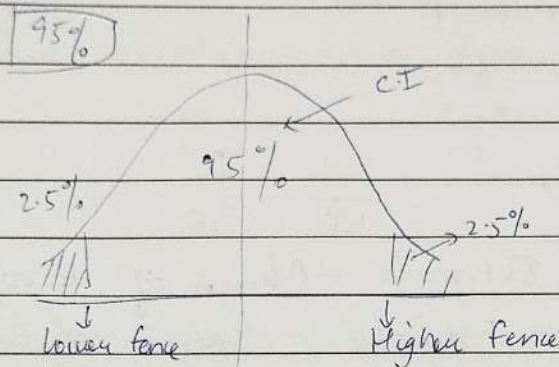 95%
C.I
95%
2.5%
2.5%
Lower fence
Higher fence